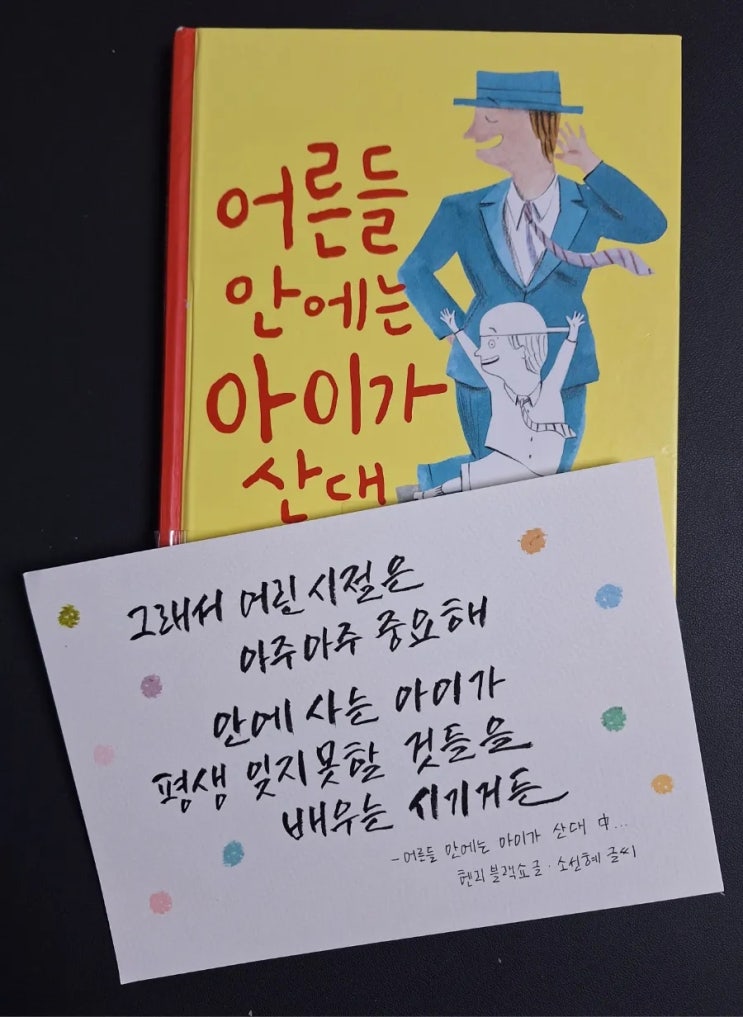 어른들
안에는
아이가
산대
그래서 어린 시절은
아주아주 중요해
안에 사는 아이가
평생 잊지못할 것들을
배우는 시기거든
-어른들 안에는 아이가 산대 中...
헨리 블랙쇼 글·소선혜 글씨